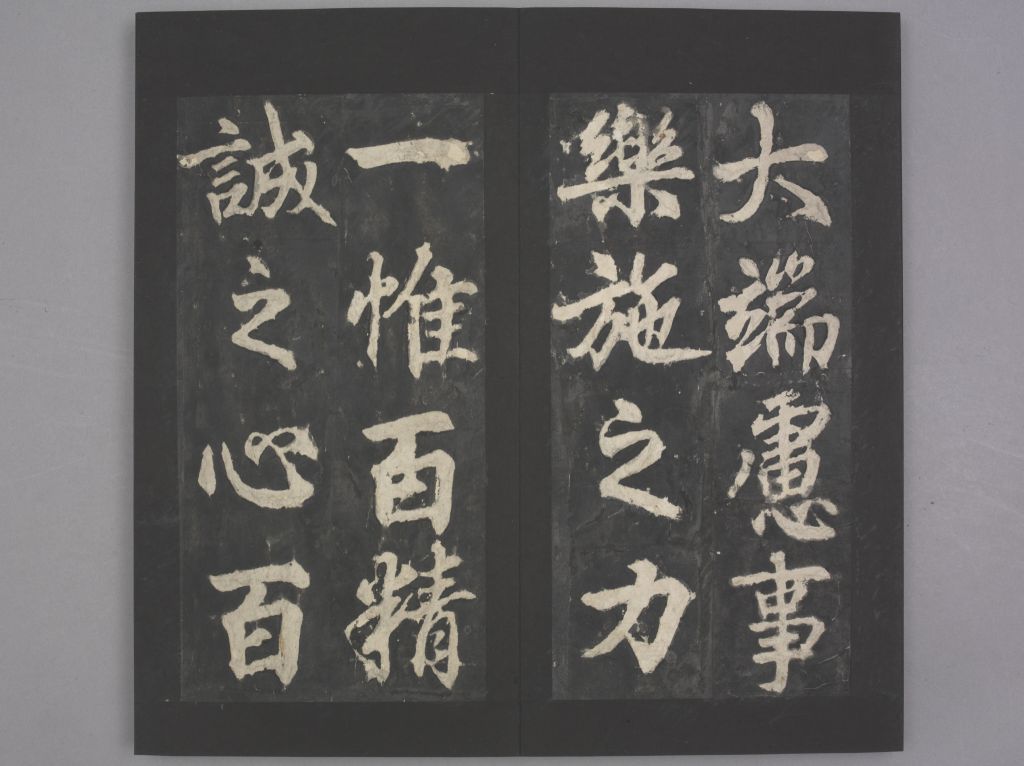 大端慮事
樂施之力
一惟百精
誠之心百